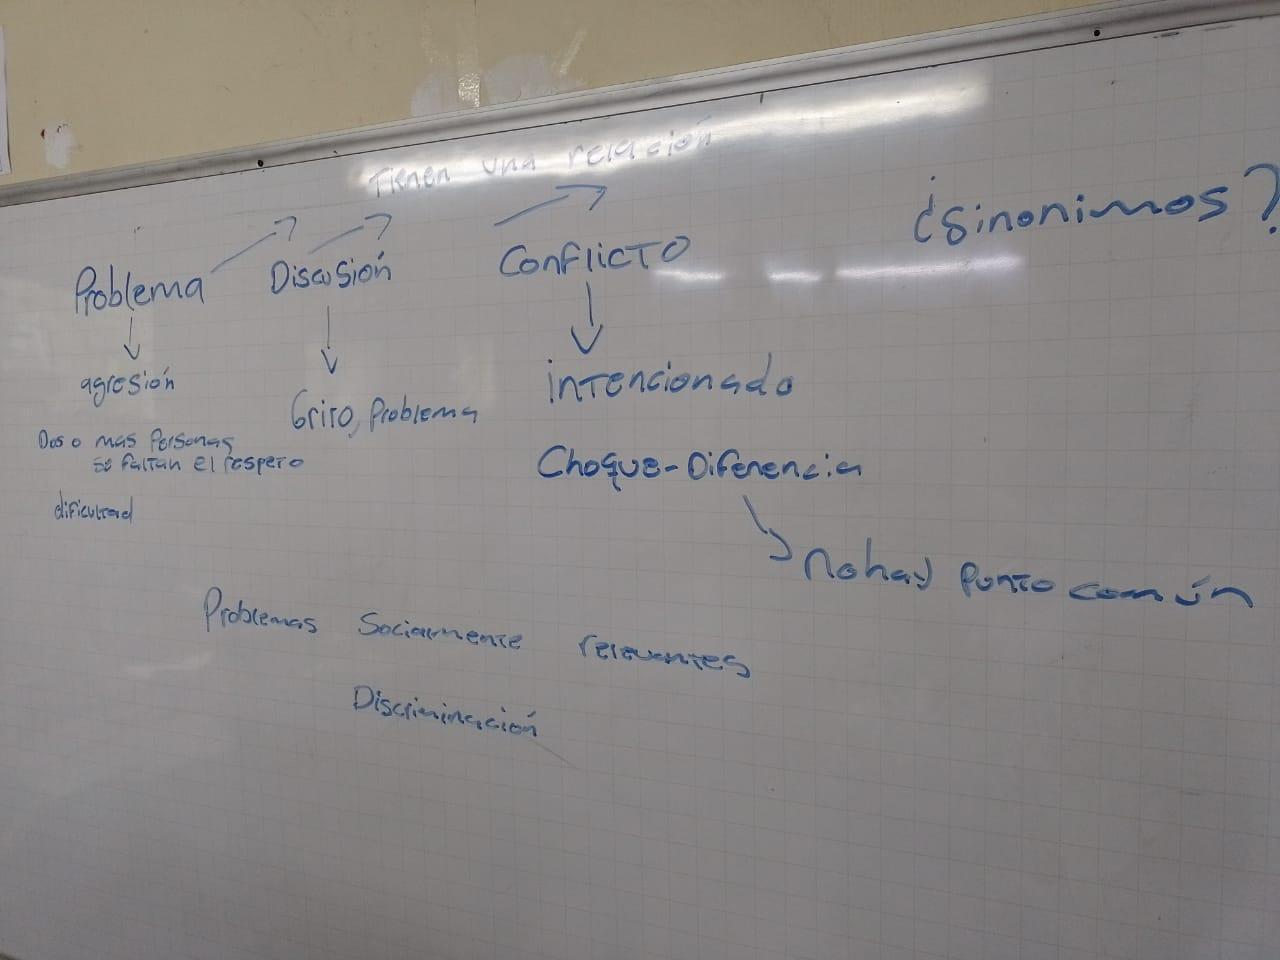 Tienen una relación
¿Sinonimos?
Problema Discusión Conflicto
agresión
Dos o mas Personas
se faltan el respeto
dificultad
Grito, Problema
intencionado
Choque-Diferencia
no hay punto común
Problemas Socialmente relevantes
Discriminación